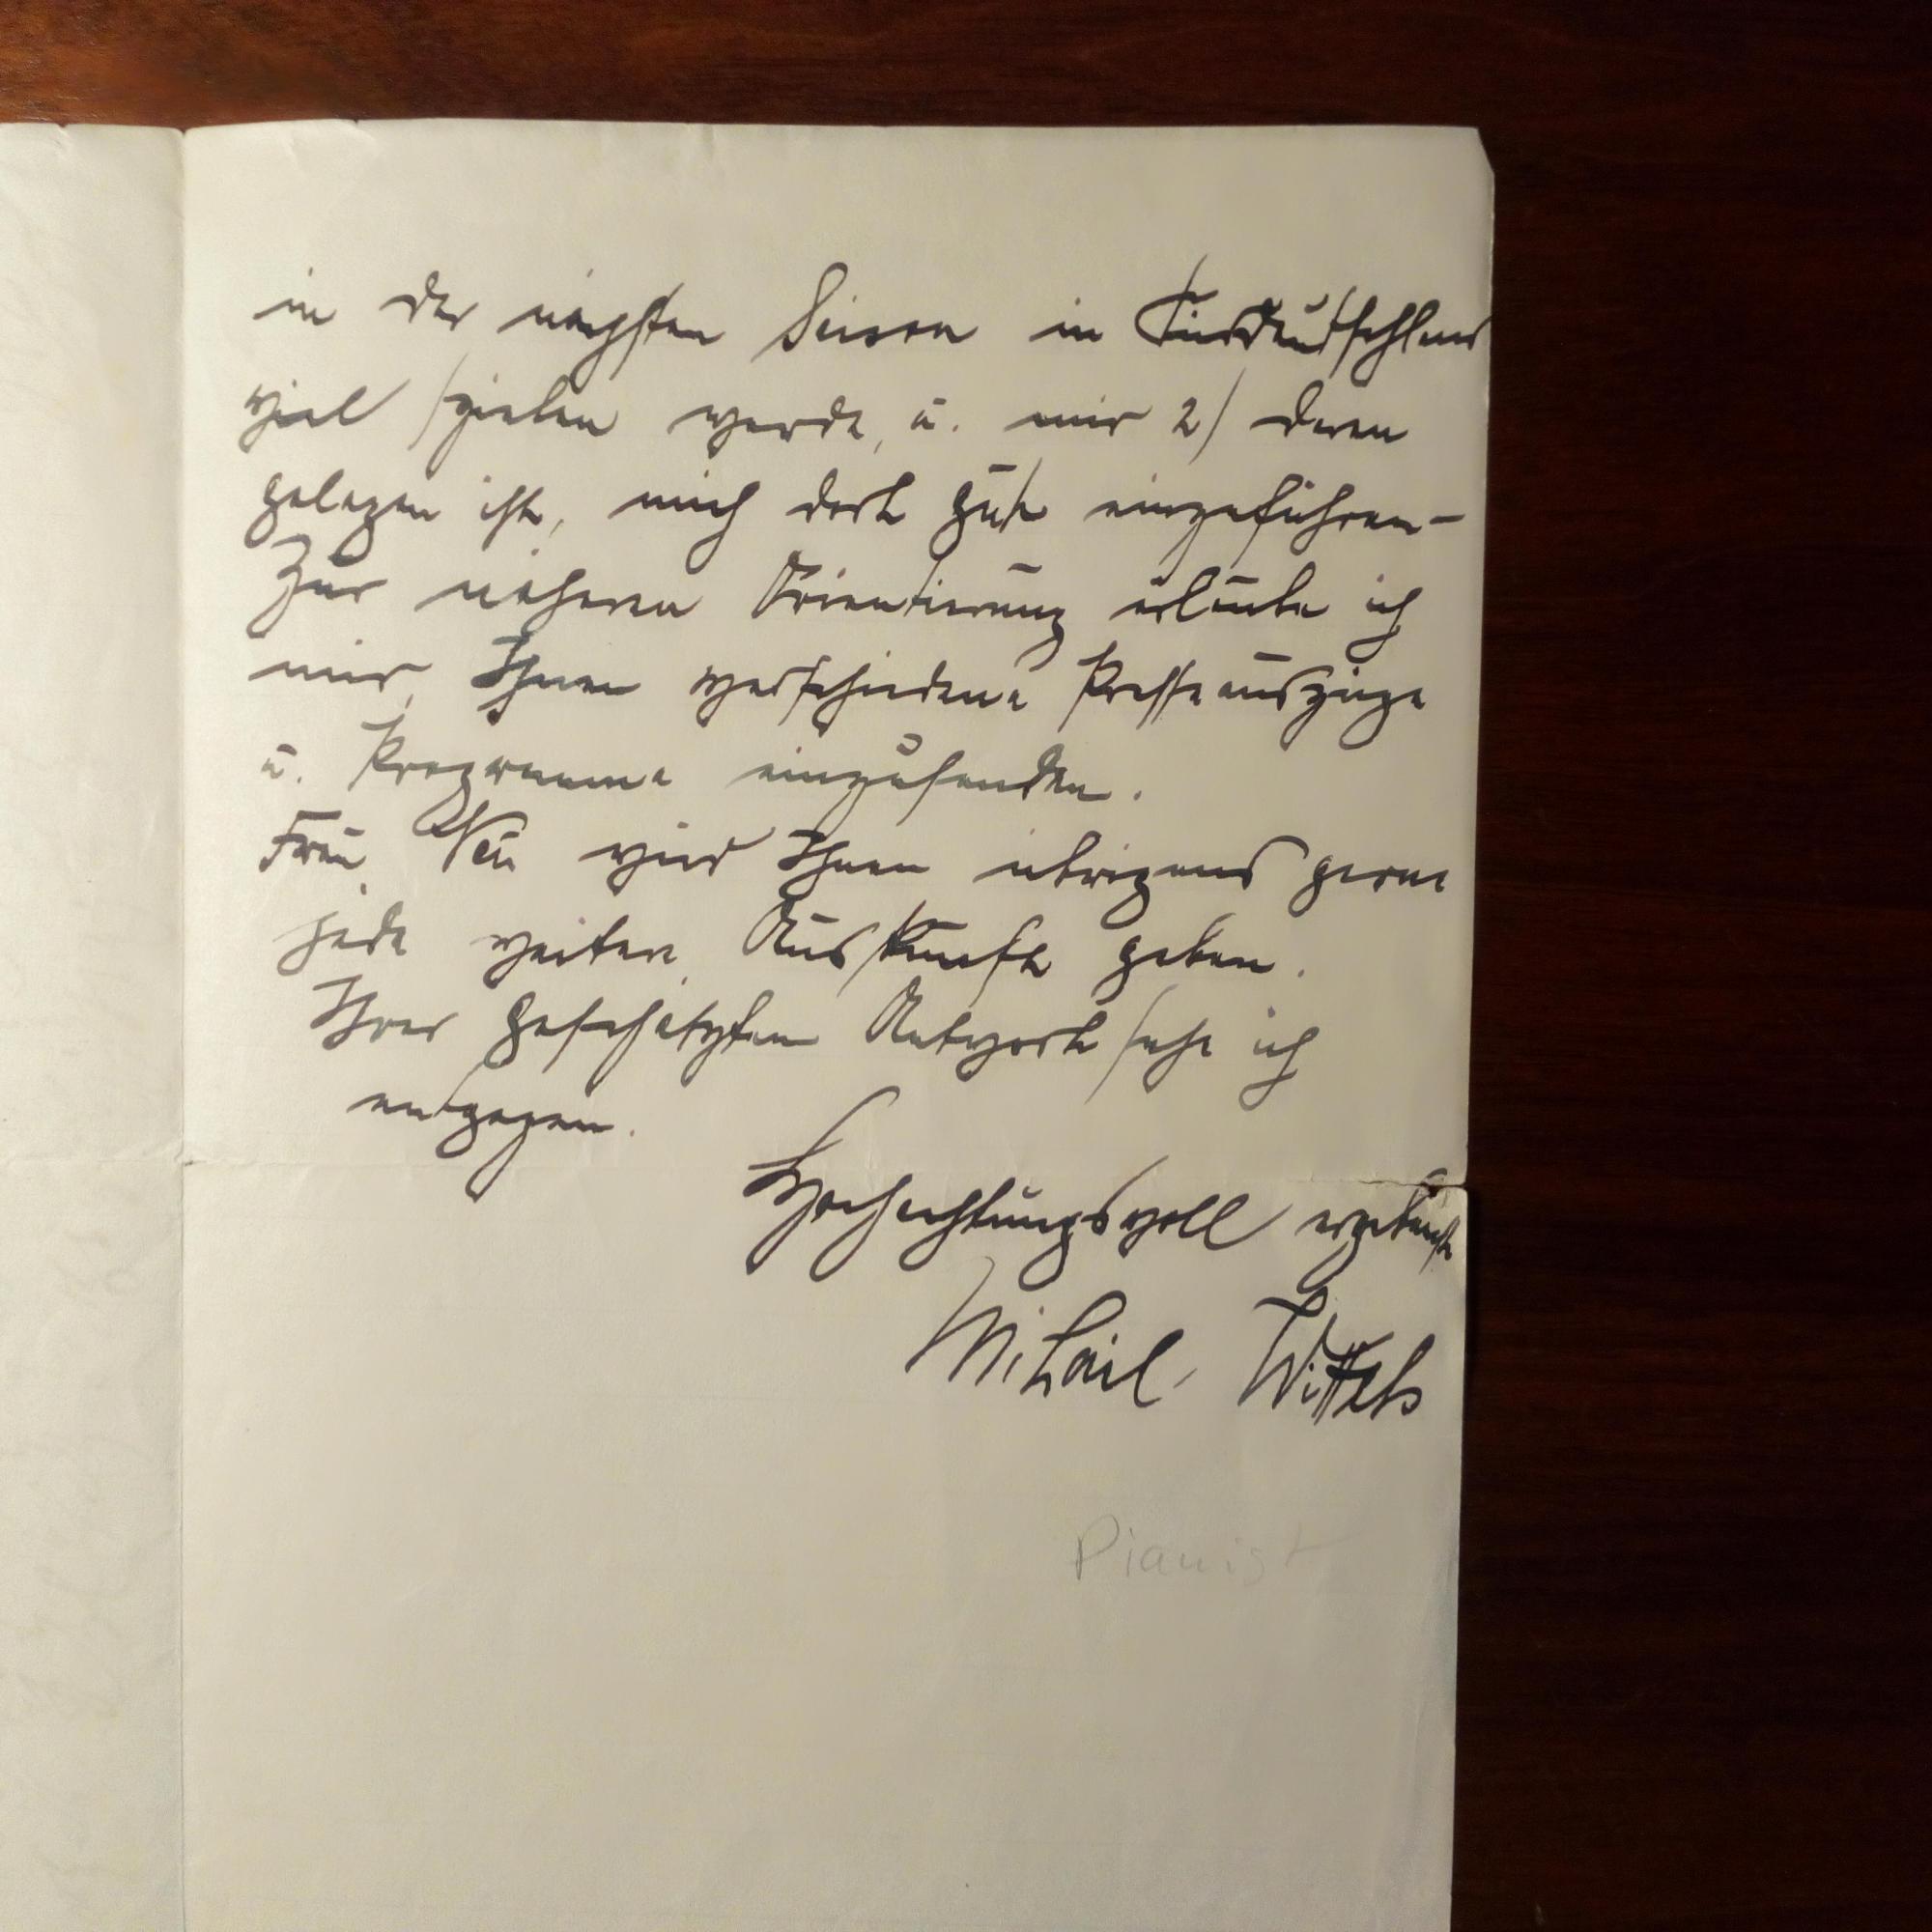 in der nächsten Saison in Süddeutschland
viel spielen werde, u. mir 2) daran
gelegen ist, mich dort gut einzuführen –
Zur näheren Orientierung erlaube ich
mir, Ihnen verschiedene Presseauszüge
u. Programme einzusenden.
Frau wird Ihnen übrigens gerne
jede weitere Auskunft geben.
Ihrer geschätzten Antwort sehe ich
entgegen.
Hochachtungsvoll ergebenst
Mihail Wittels
Pianist